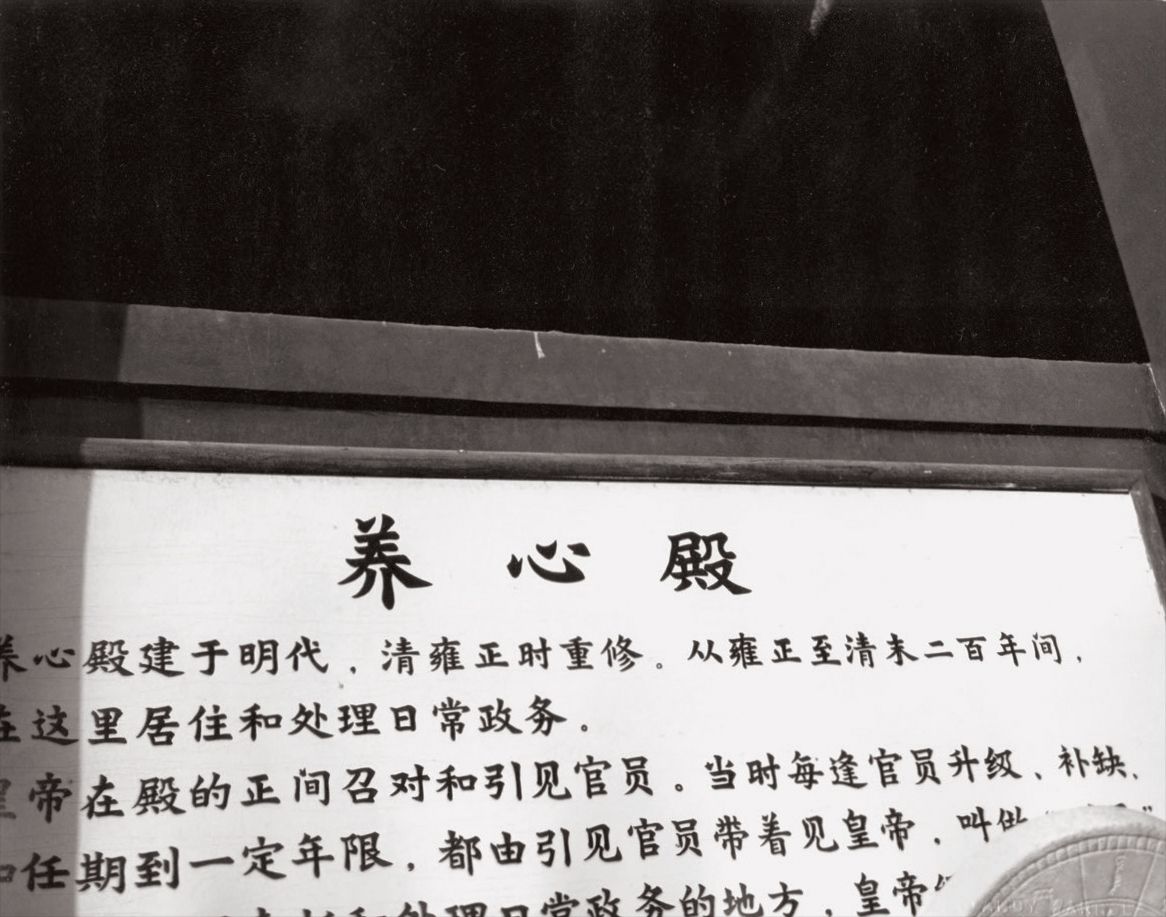 养心殿
养心殿建于明代，清雍正时重修。从雍正至清末二百年间，
在这里居住和处理日常政务。
皇帝在殿的正间召对和引见官员。当时每逢官员升级、补缺、
和任期到一定年限，都由引见官员带着见皇帝，叫做“
和处理日常政务的地方，皇帝